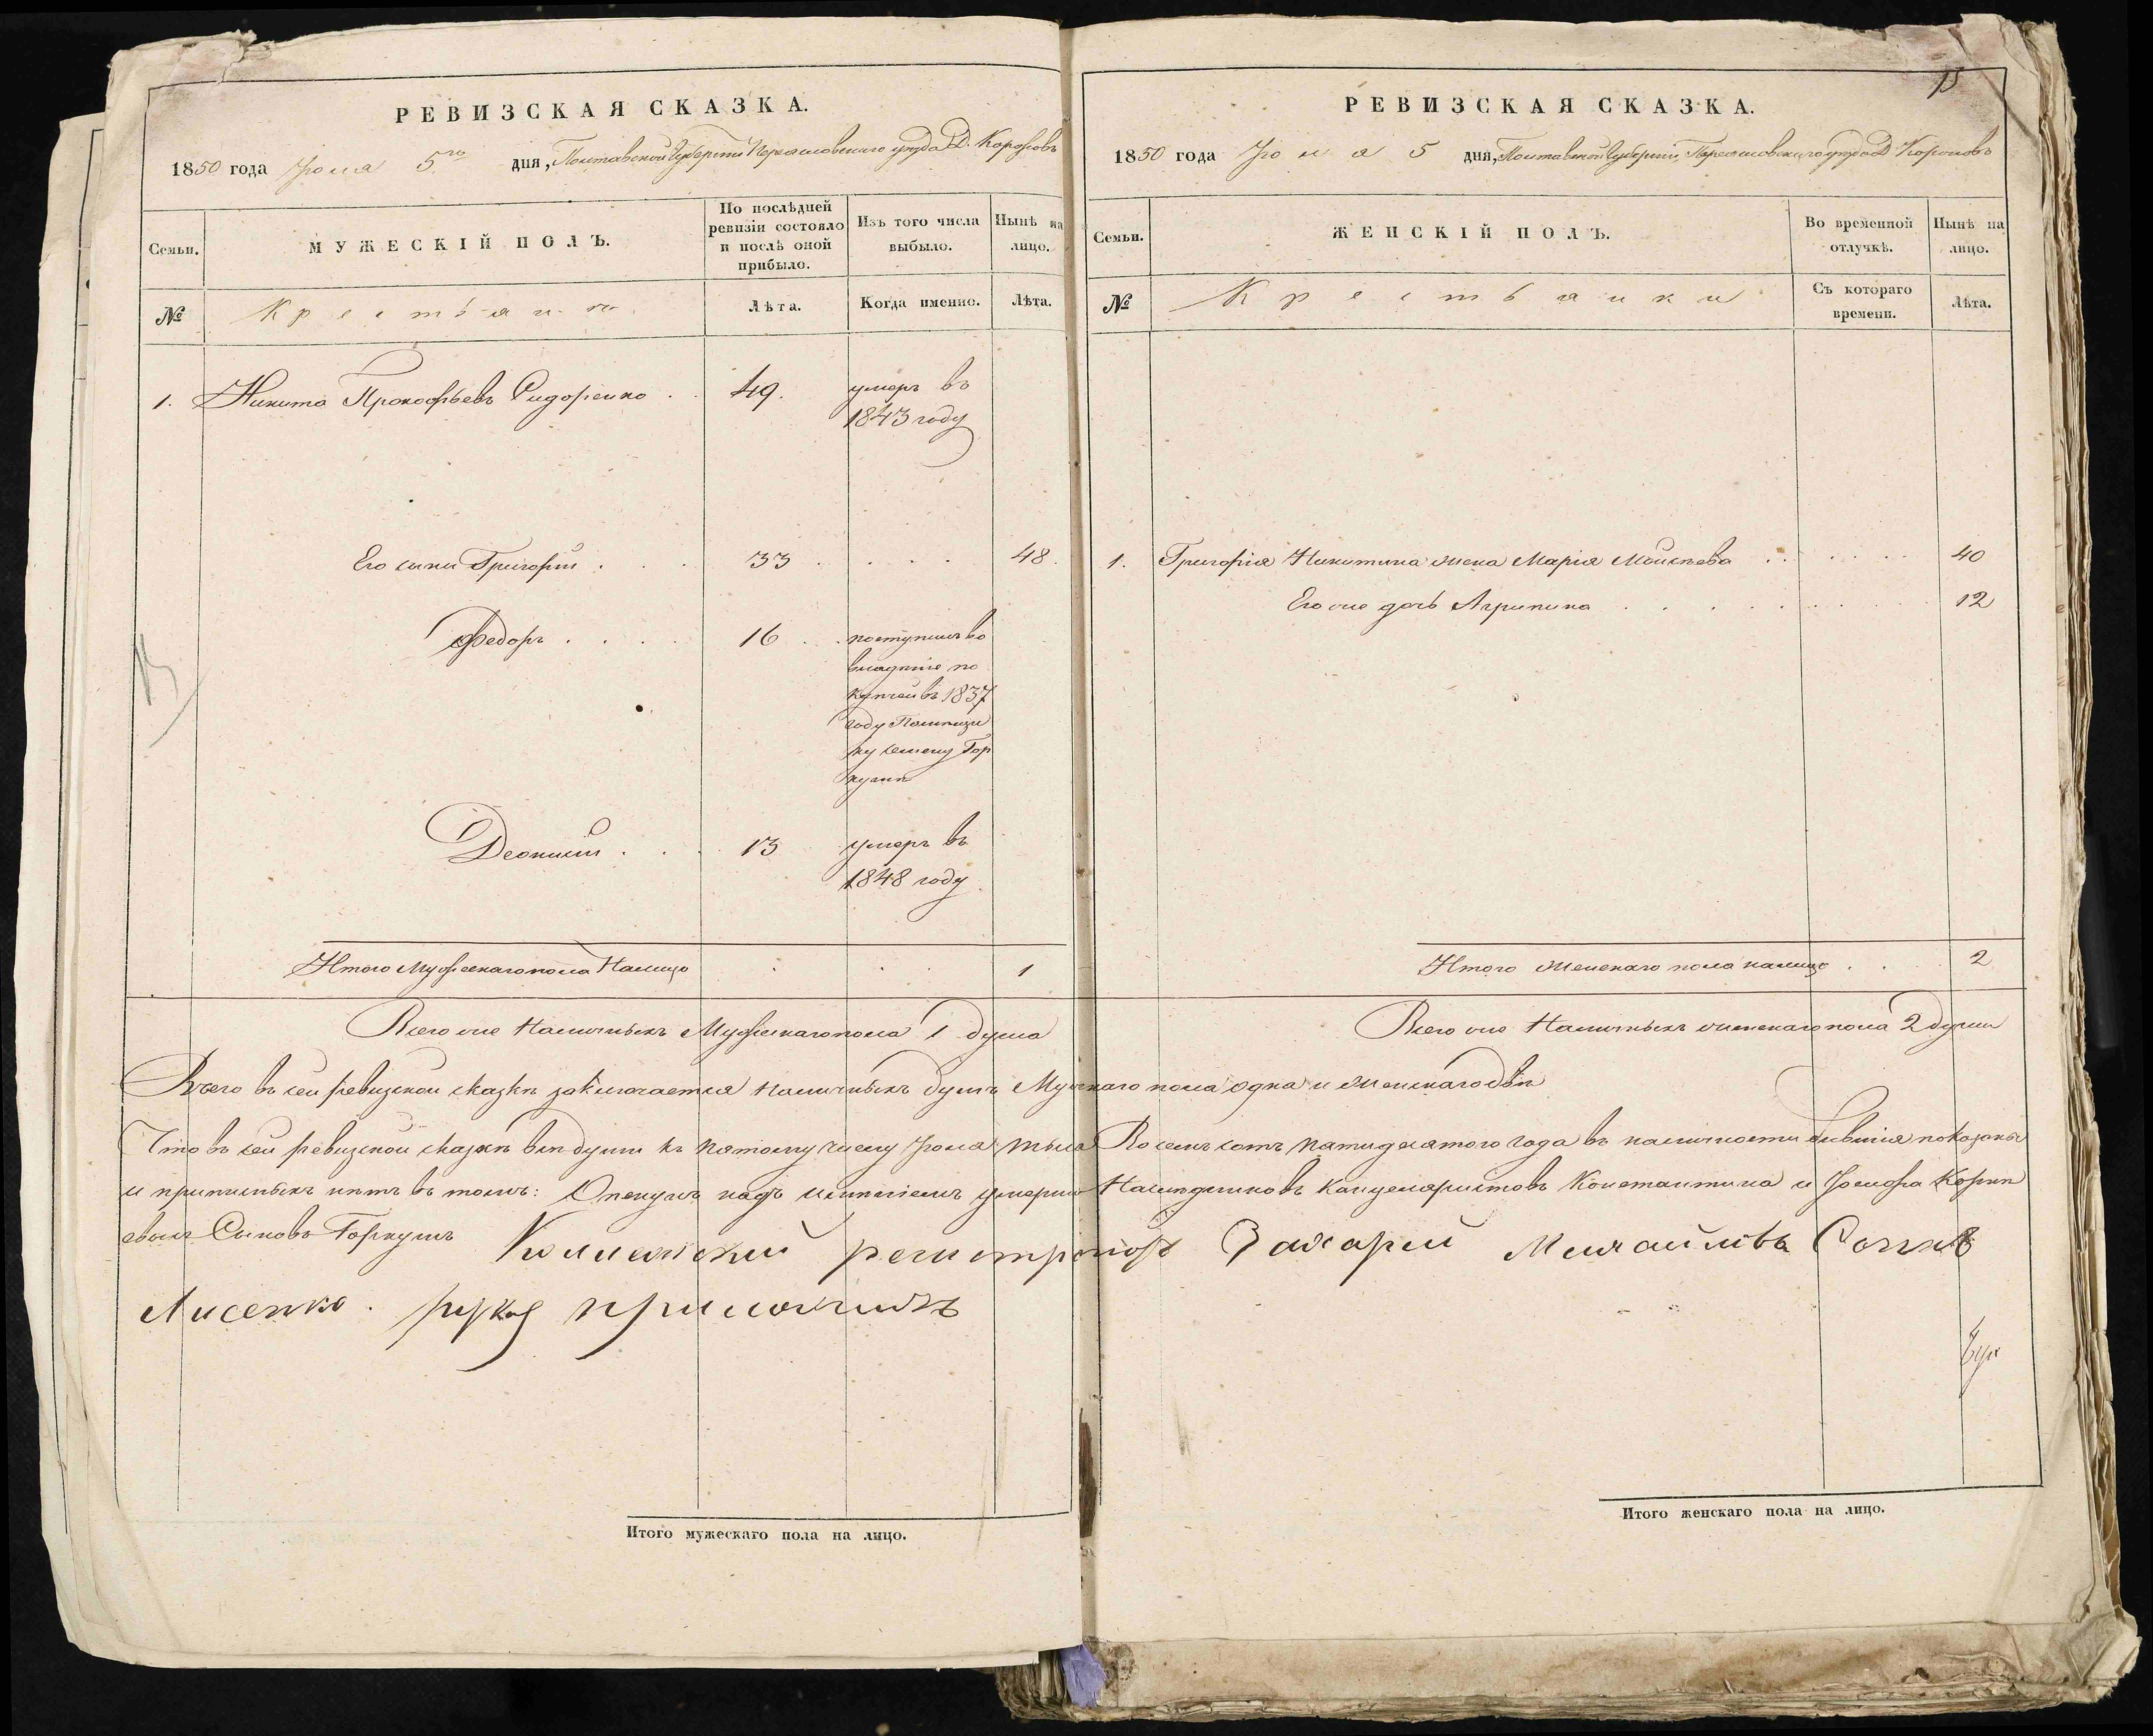 РЕВИЗСКАЯ СКАЗКА.
1850 года Іюня 5го дня, Полтавской Губерніи Переяловского уезда Д. Коропов
Семьи.
МУЖЕСКІЙ ПОЛЪ.
По послѣдней ревизіи состояло и послѣ оной прибыло.
Изъ того числа выбыло.
Нынѣ на лицо.
№
Крестьяне
Лѣта.
Когда именно.
Лѣта.
1. Никита Прокофьевъ Сидоренко . . 49. умеръ въ
1843 году
Его сыни Григорій . . . 33 . . . . 48.
Федоръ . . . . 16 . . поступилъ во
владѣніе по
купчей въ 1837
году Помѣщи
ку Гор
кушѣ
13
Деонисій . . . 13 умеръ въ
1848 году
Итого Мужескаго пола Налицо . . . 1
Всего же Наличныхъ Мужескаго пола 1 душа
РЕВИЗСКАЯ СКАЗКА.
15
1850 года Іюня 5 дня, Полтавской Губерніи, Переяловского уезда Д Коропов
Семьи.
ЖЕНСКІЙ ПОЛЪ.
Во временной отлучкѣ.
Нынѣ на лицо.
№
Крестьянки
Съ котораго времени.
Лѣта.
1. Григорія Никитина жена Марія Моисѣева . . . . . . 40
Его же дочь Агрипина . . . . . . . . 12
Итого Женскаго пола налицо . . . 2
Всего же Наличныхъ женскаго пола 2 души
Всего въ сей ревизской сказкѣ заключается наличныхъ душъ Мужскаго пола одна и Женскаго двѣ
Что въ сей ревизской сказкѣ всѣ души къ пятому числу Іюня тысяча Восемь сотъ пятидесятого года въ наличности бывшія показаны
и приписныхъ нѣтъ въ томъ: Опекунъ надъ имѣніемъ умершо Наслѣдниковъ Канцеляристовъ Константина и Іосифа Корнѣ
евыхъ Сыновъ Горкушъ Коллежский регистраторъ Захарий Михайловъ Сынъ
Лисенко. руку приложилъ
Итого мужескаго пола на лицо.
Итого женскаго пола на лицо.